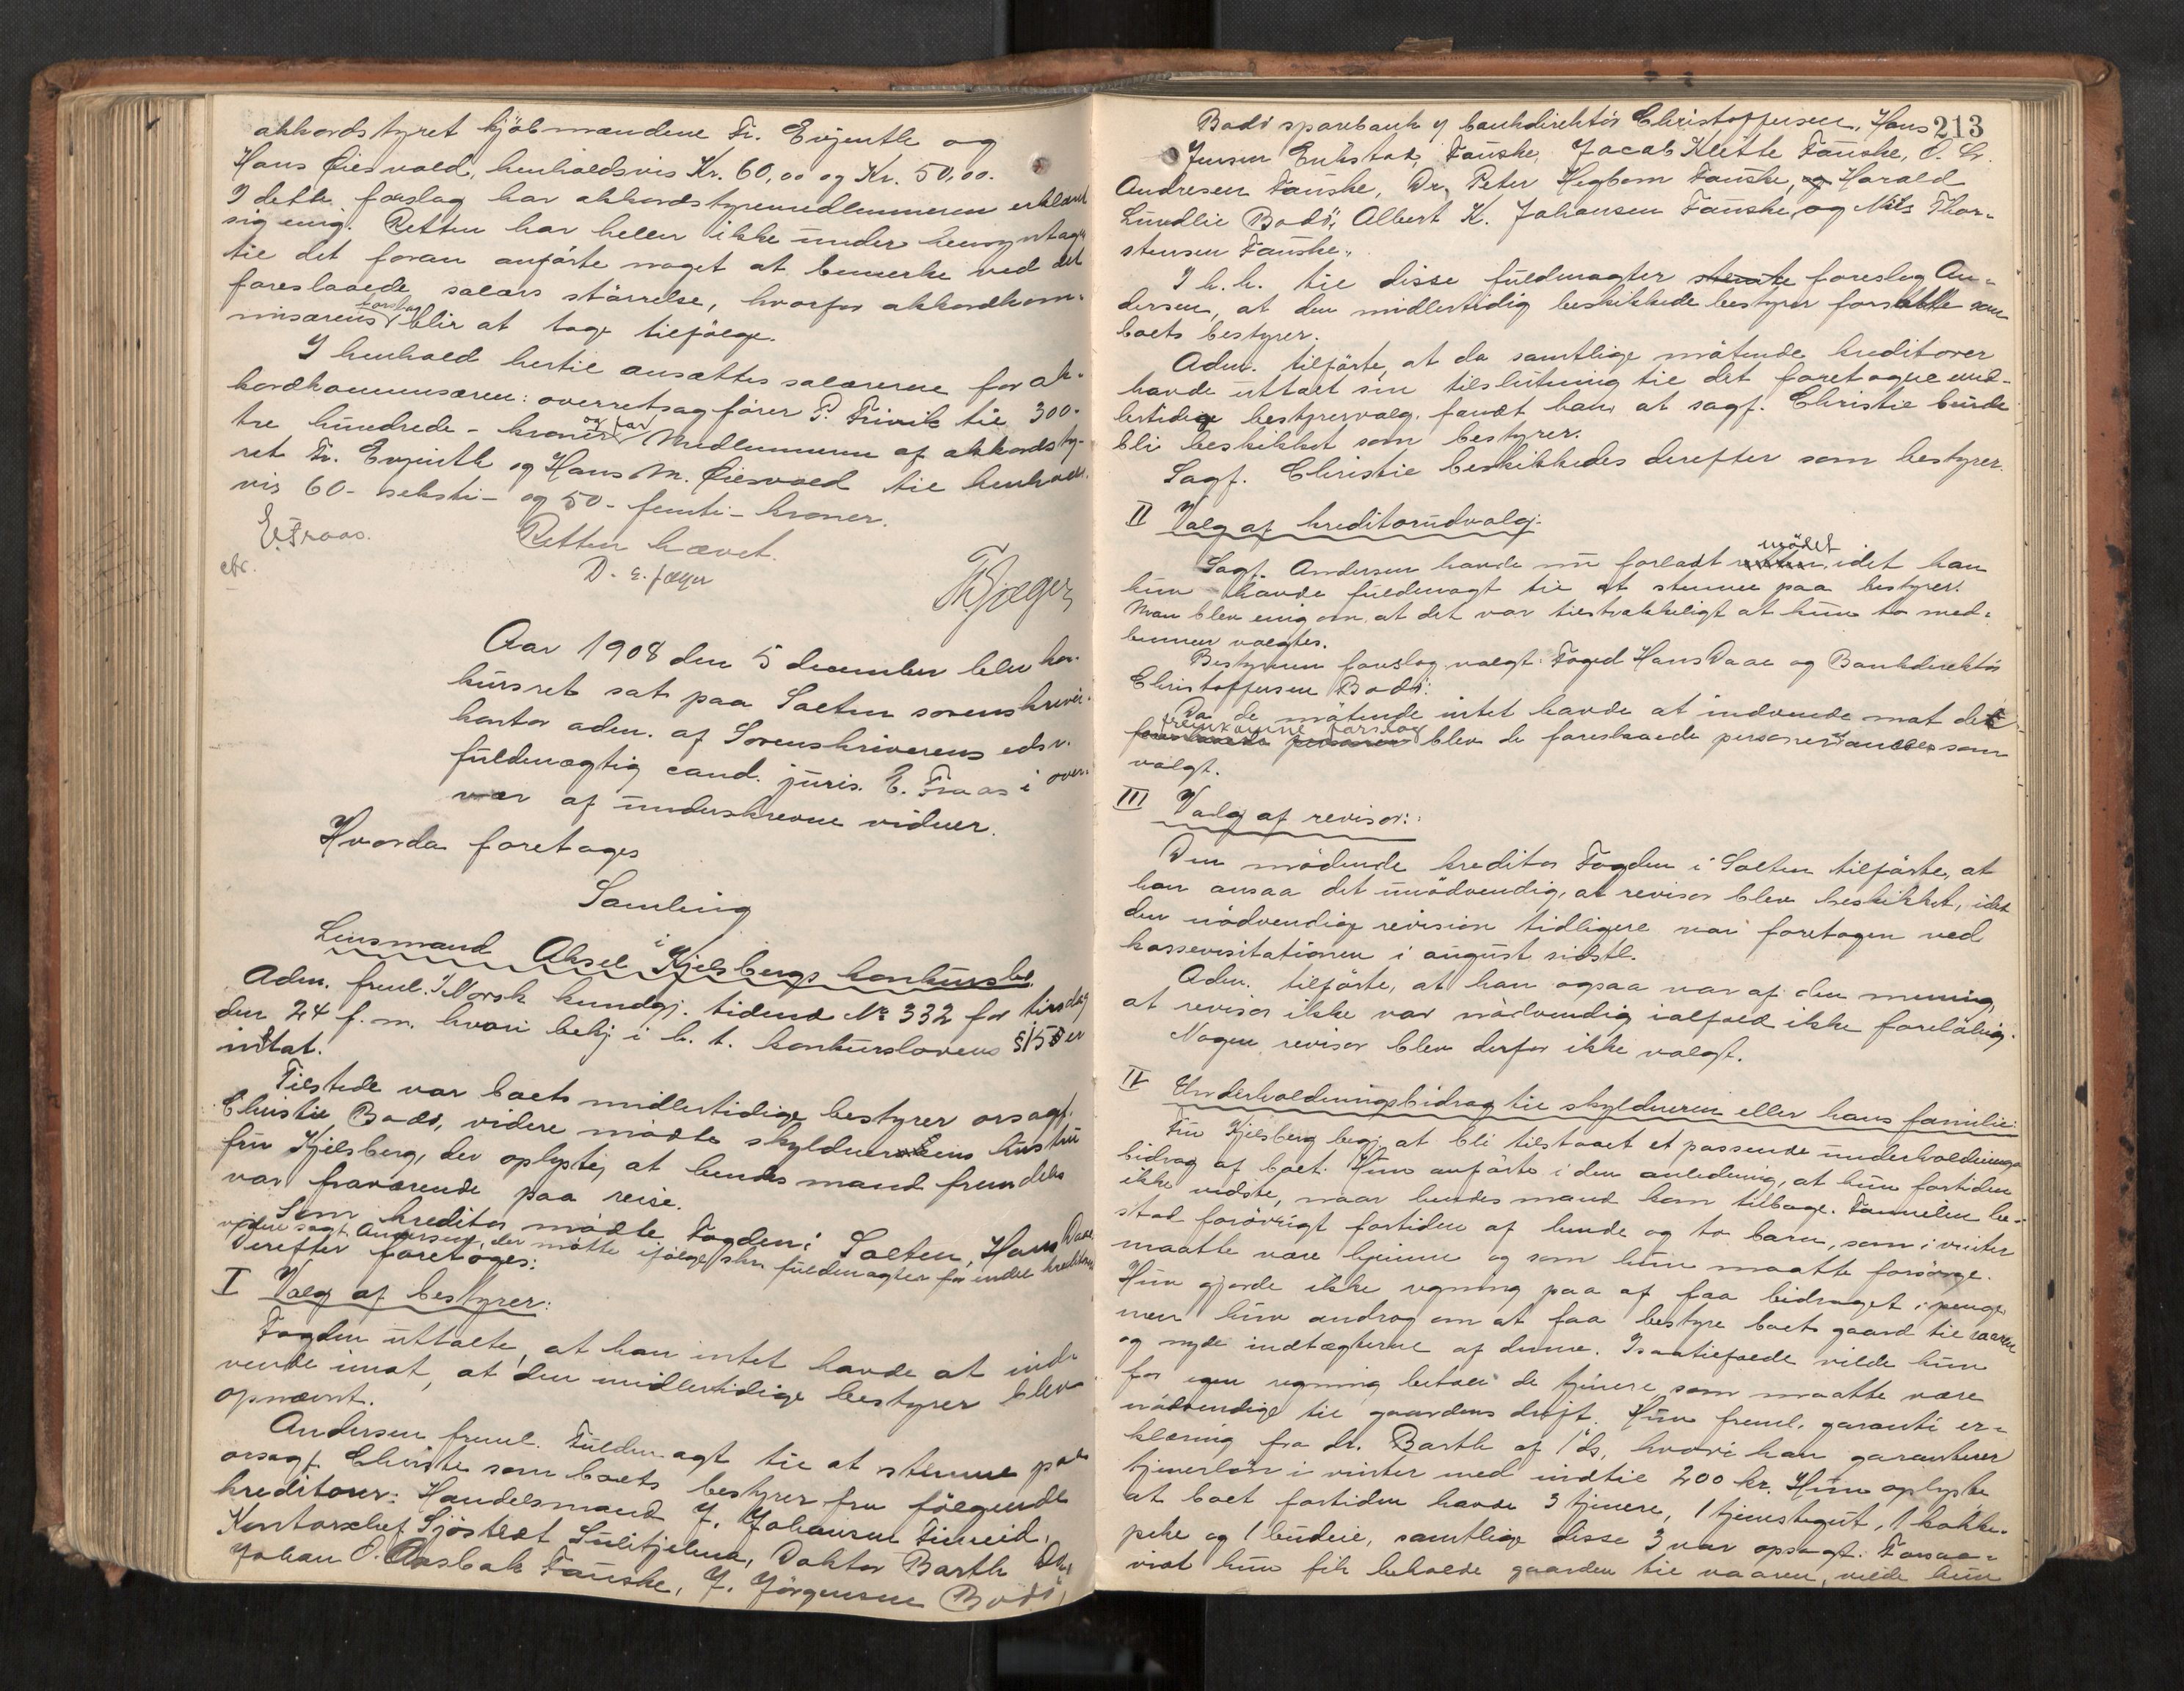 akkordstyret kjöbmændene Fr. Evjenth og
Hans Øiesvold, henholdsvis Kr. 60,00 og Kr. 50,00.
I dette forslag har akkordstyremedlemmerne erklært
sig enig. Retten har heller ikke under hensyntagen
til det foran anførte noget at bemerke ved det
foreslaaede salærs størrelse, hvorfor akkordkom-
misærens forslag blir at tage tilfölge.
I henhold hertil ansættes salærerne for ak-
kordkommisæren: overretsagfører P. Trivik til 300-
tre hundrede - kroner og for Medlemmene af akkordsty-
ret Fr. Evjenth og Hans M. Øiesvold til henholds-
vis 60 - seksti - og 50 - femti - kroner.
Retten hævet.
E. Fraas.
D. E. Jæger
ThJæger
Aar 1908 den 5 december blev kon-
kursret sat paa Salten sorenskriver-
kontor adm. af Sorenskriverens edsv.
fuldmægtig cand. juris. E. Fraas i over-
vær af underskrevne vidner.
Hvorda foretoges
Samling
i
Lensmand Aksel Kjelsbergs konkursbo.
Adm. freml. Norsk kundgj. tidende No 332 for tirsdag
den 24 f. m. hvori bekj. i h. t. konkurslovens § 15 er
intat.
Tilstede var boets midlertidige bestyrer orsagf.
Christie Bodö, videre mödte skyldnerens hustru
fru Kjelsberg, der oplyste, at hendes mand fremdeles
var fraværende paa reise.
Som kreditor mödte Fogden i Salten, Hans Daae
videre sagf. Andersen, der mötte ifølge skr. fuldmagter for endel kreditorer
Derefter foretoges:
I Valg af bestyrer:
Fogden uttalte, at han intet havde at ind-
vende imot, at den midlertidige bestyrer blev
opnævnt.
Andersen freml. Fuldmagt til at stemme paa
orsagf. Christie som boets bestyrer fra fölgende
kreditorer: Handelsmand J. Johansen Finneid,
Kontorchef Sjöstedt Sulitjelma, Doktor Barth
Johan O. Aasbak Fauske, J. Jörgensen Bodö,
213
Bodö sparebank v/ bankdirektör Christoffersen, Hans
Jensen Fauske, Jacob Klette Fauske, O. Chr.
Andresen Fauske, Dr. Peter Hegbom Fauske, og Harald
Lundlie Bodö, Albert K. Johansen Fauske og Nils Thor-
stensen Fauske.
I h. h. til disse fuldmagter stemte foreslog An-
dersen, at den midlertidig beskikkede bestyrer forsatte som
boets bestyrer.
Adm. tilförte, at da samtlige mötende kreditorer
havde uttalt sin tilslutning til det foretagne mid-
lertidige bestyrervalg, fandt han, at sagf. Christie burde
bli beskikket som bestyrer.
Sagf. Christie beskikkedes derefter som bestyrer.
II Valg af kreditorudvalg:
Sagf. Andersen havde nu forladt mödet idet han
kun havde fuldmagt til at stemme paa bestyrer.
Man blev enig om, at det var tilstrækkeligt at kun to med-
lemmer valgtes.
Bestyreren foreslog valgt: Foged Hans Daae og Bankdirektör
Christoffersen Bodö.
Da de mötende intet havde at indvende mot det
fremkomne forslag blev de foreslaaede personer ansees som
valgt.
III Valg af revisor:
Den mödende kreditor Fogden i Salten tilförte, at
han ansaa det unödvendig, at revisor blev beskikket, idet
den nödvendige revision tidligere var foretagen ved
kassevisitationen i august sidstl.
Adm. tilförte, at han ogsaa var af den mening,
at revisor ikke var nödvendig ialfald ikke forelöbig.
Nogen revisor blev derfor ikke valgt.
IV Underholdningsbidrag til skyldneren eller hans familie:
Fru Kjelsberg begj. at bli tilstaaet et passende underholdnings-
bidrag af boet. Hun anförte i den anledning, at hun fortiden
ikke vidste, naar hendes mand kom tilbage. Familien be-
stod forövrigt fortiden af hende og to barn, som i vinter
maatte være hjemme og som hun maatte forsörge.
Hun gjorde ikke regning paa at faa bidraget i penger
men hun androg om at faa bestyre boets gaard til vaaren
og nyde indtægterne af denne. Isaatilfælde vilde hun
for egen regning betale de tjenere som maatte være
nödvendige til gaardens drift. Hun freml. garanti er-
klæring fra dr. Barth af 1 ds, hvori han garanterer
tjenerlön i vinter med indtil 200 kr. Hun oplyste
at boet fortiden havde 3 tjenere, 1 tjenestegut, 1 kokke-
pike og 1 budeie, samtlige disse 3 var opsagt. Forsaa-
vidt hun fik beholde gaarden til vaaren, vilde hun